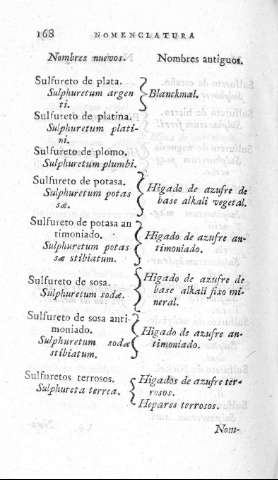 168 NOMENCLATURA
Nombres nuevos. Nombres antiguos.
Sulfureto de plata.
Sulphuretum argen
ti.
Blanckmal.
Sulfureto de platina.
Sulphuretum plati-
ni.
Sulfureto de plomo.
Sulphuretum plumbi.
Sulfureto de potasa.
Sulphuretum potas
sæ.
Higado de azufre de
base alkali vegetal.
Sulfureto de potasa an
timoniado.
Sulphuretum potas
sæ stibiatum.
Higado de azufre an-
timoniado.
Sulfureto de sosa.
Sulphuretum sodæ.
Higado de azufre de
base alkali fixo mi-
neral.
Sulfureto de sosa anti-
moniado.
Sulphuretum sodæ
stibiatum.
Higado de azufre an-
timoniado.
Sulfuretos terrosos.
Sulphureta terrea.
Higados de azufre ter-
rosos.
Hepares terrosos.
Nom-